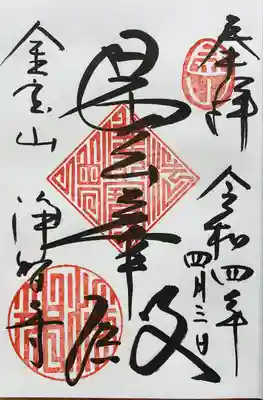 奉拝
令和四年
四月三日
曇華殿
金宝山
浄智寺